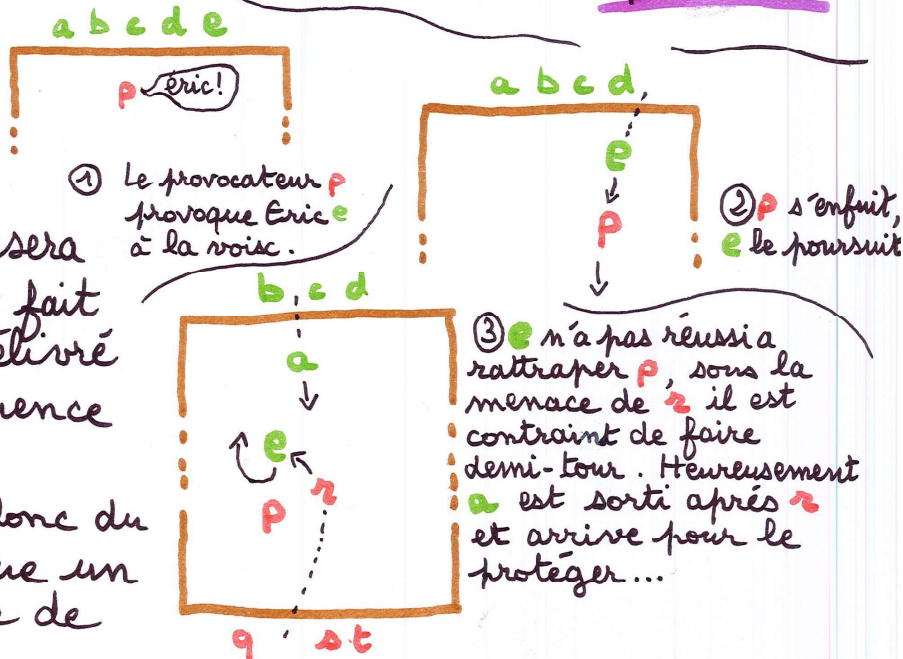 a b c d e
p éric!
① Le provocateur p
provoque Eric e
à la voisc.
a b c d
e
p
② p s'enfuit,
e le poursuit
sera
fait
élivré
donc du
un
de
b c d
a
e
p r
q s t
③ e n'a pas réussi a
rattraper p, sous la
menace de r il est
contraint de faire
demi-tour. Heureusement
a est sorti aprés r
et arrive pour le
protéger...